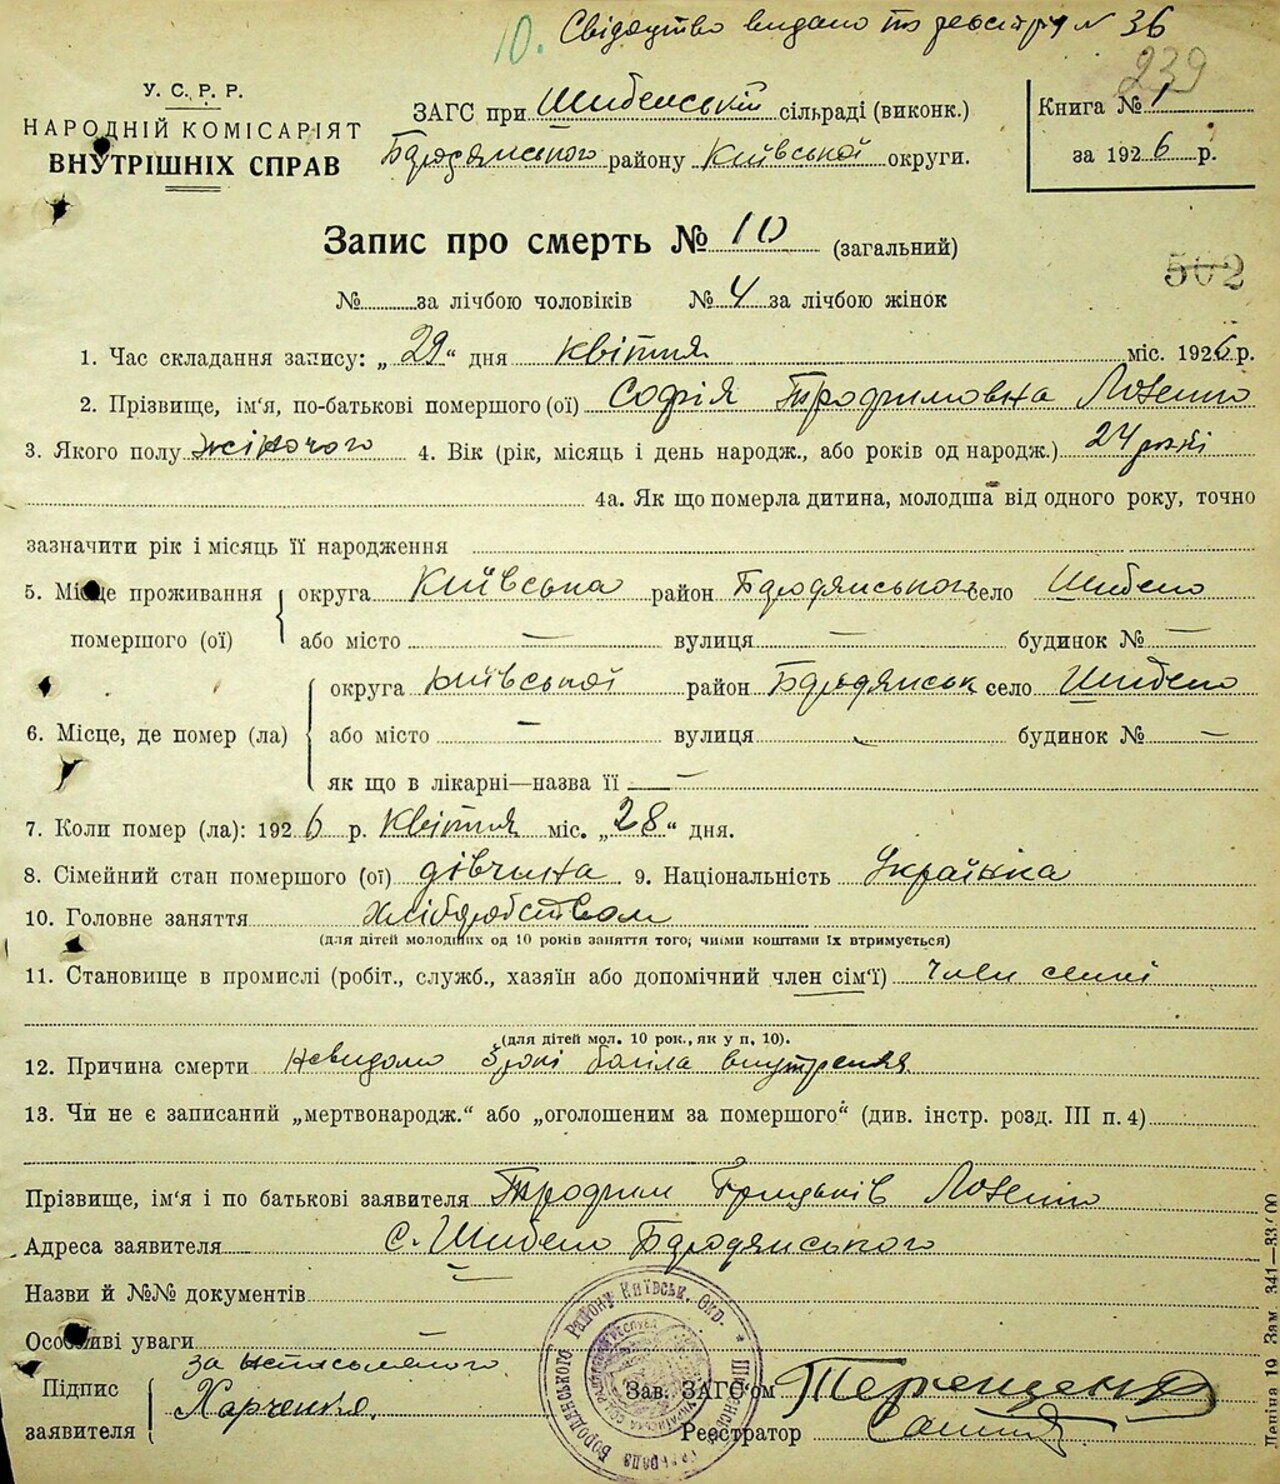 10. Свідоцтво видано по реєстру № 36
239
У. С. Р. Р.
НАРОДНІЙ КОМІСАРІЯТ
ВНУТРІШНІХ СПРАВ
ЗАГС при Шибенській сільраді (виконк.)
Бородянського району Київської округи.
Книга № 1
за 1926 р.
Запис про смерть № 10 (загальний)
502
№ за лічбою чоловіків № 4 за лічбою жінок
1. Час складання запису: „29“ дня квітня міс. 1926 р.
2. Прізвище, ім‘я, по-батькові помершого (ої) Софія Трофимовна
3. Якого полу жіночого 4. Вік (рік, місяць і день народж., або років од народж.) 24 роки
4а. Як що померла дитина, молодша від одного року, точно
зазначити рік і місяць її народження
5. Місце проживання помершого (ої) округа Київська район Бородянського село Шибено
або місто — вулиця — будинок № —
6. Місце, де помер (ла) округа Київської район Бородянськ село Шибено
або місто — вулиця будинок № —
як що в лікарні—назва її —
7. Коли помер (ла): 1926 р. Квітня міс. „28“ дня.
8. Сімейний стан помершого (ої) дівчина 9. Національність Українка
10. Головне заняття Хліборобством
(для дітей молодших од 10 років заняття того, чиїми коштами їх втримується)
11. Становище в промислі (робіт., служб., хазяїн або допомічний член сім‘ї) член семї
(для дітей мол. 10 рок., як у п. 10).
12. Причина смерти Невидомо боліла внутрення
13. Чи не є записаний „мертвонародж.“ або „оголошеним за помершого“ (див. інстр. розд. III п. 4)
Прізвище, ім‘я і по батькові заявителя Трофим Грицьків
Адреса заявителя с. Шибено Бородянського
Назви й №№ документів
Особливі уваги —
за неписьменого
Підпис заявителя Харченко.
Зав. ЗАГС‘ом Терещенко
Реєстратор
Району Київськ. Окр.
Бородянського
Зам. 341—33/00